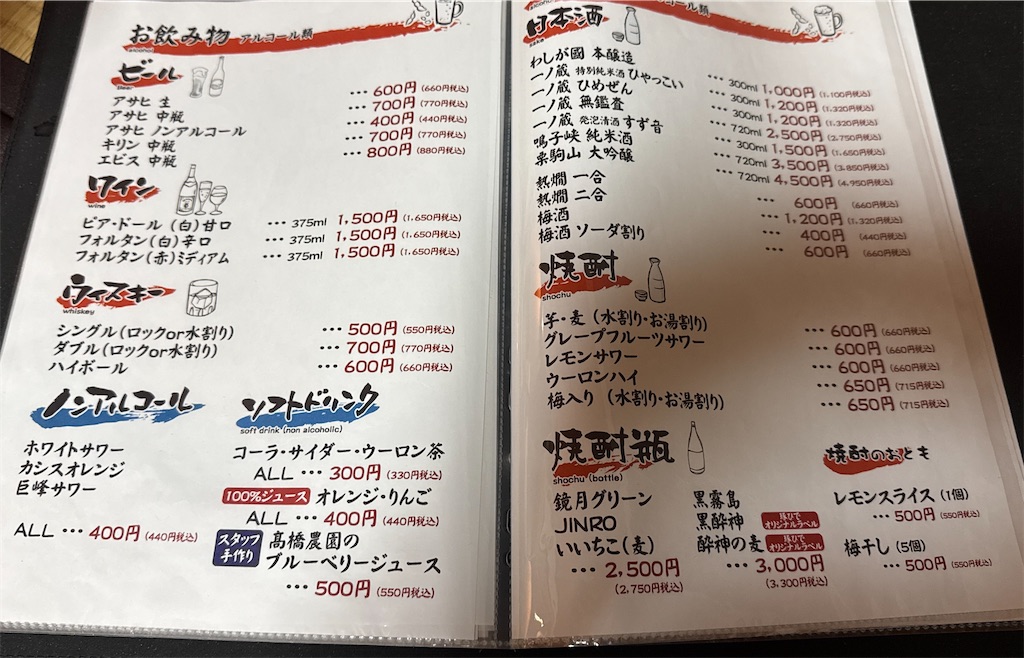 お飲み物 アルコール類
alcohol
ビール
beer
アサヒ 生 … 600円(660円税込)
アサヒ 中瓶 … 700円(770円税込)
アサヒ ノンアルコール … 400円(440円税込)
キリン 中瓶 … 700円(770円税込)
エビス 中瓶 … 800円(880円税込)
ワイン
wine
ピア・ドール (白)甘口 … 375ml 1,500円(1,650円税込)
フォルタン(白)辛口 … 375ml 1,500円(1,650円税込)
フォルタン(赤)ミディアム … 375ml 1,500円(1,650円税込)
ウィスキー
whiskey
シングル(ロックor水割り) … 500円(550円税込)
ダブル(ロックor水割り) … 700円(770円税込)
ハイボール … 600円(660円税込)
ノンアルコール
ホワイトサワー
カシスオレンジ
巨峰サワー
ALL … 400円(440円税込)
ソフトドリンク
soft drink (non alcoholic)
コーラ・サイダー・ウーロン茶
ALL … 300円(330円税込)
100%ジュース オレンジ・りんご
ALL … 400円(440円税込)
スタッフ手作り 髙橋農園の
ブルーベリージュース
… 500円(550円税込)
日本酒
sake
わしが國 本醸造 … 300ml 1,000円(1,100円税込)
一ノ蔵 特別純米酒 ひゃっこい … 300ml 1,200円(1,320円税込)
一ノ蔵 ひめぜん … 300ml 1,200円(1,320円税込)
一ノ蔵 無鑑査 … 720ml 2,500円(2,750円税込)
一ノ蔵 発泡清酒 すず音 … 300ml 1,500円(1,650円税込)
鳴子峡 純米酒 … 720ml 3,500円(3,850円税込)
栗駒山 大吟醸 … 720ml 4,500円(4,950円税込)
熱燗 一合 … 600円(660円税込)
熱燗 二合 … 1,200円(1,320円税込)
梅酒 … 400円(440円税込)
梅酒 ソーダ割り … 600円(660円税込)
焼酎
shochu
芋・麦(水割り・お湯割り) … 600円(660円税込)
グレープフルーツサワー … 600円(660円税込)
レモンサワー … 600円(660円税込)
ウーロンハイ … 650円(715円税込)
梅入り(水割り・お湯割り) … 650円(715円税込)
焼酎瓶
shochu (bottle)
鏡月グリーン
JINRO
いいちこ(麦)
… 2,500円
(2,750円税込)
黒霧島
黒酔神 オリジナルラベル
酔神の麦 オリジナルラベル
… 3,000円
(3,300円税込)
焼酎のおとも
レモンスライス(1個)
… 500円(550円税込)
梅干し(5個)
… 500円(550円税込)